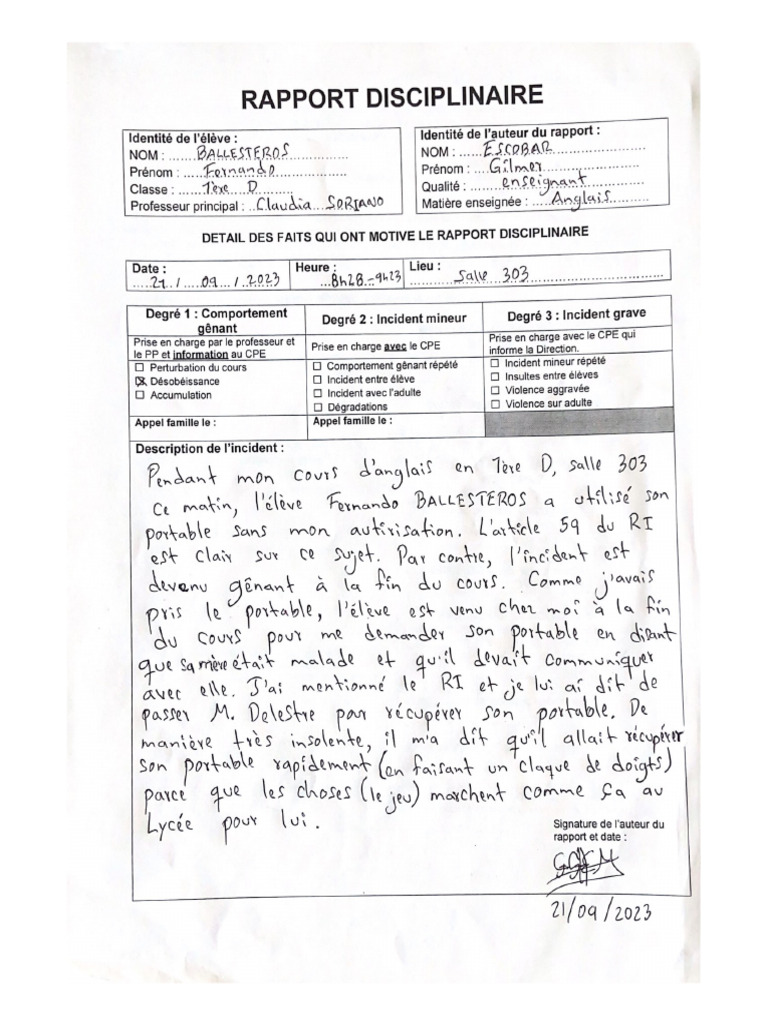 RAPPORT DISCIPLINAIRE
Identité de l'élève :
NOM : .......BALLESTEROS................
Prénom : .......Fernando.............
Classe : .......1ère D...........
Professeur principal : ..Claudia SORIANO
Identité de l'auteur du rapport :
NOM : ......ESCOBAR.......................
Prénom : .......Gilmer..................
Qualité : ........enseignant.............
Matière enseignée : .....Anglais..........
DETAIL DES FAITS QUI ONT MOTIVE LE RAPPORT DISCIPLINAIRE
Date :
....21./...09.../.2023
Heure :
....8h28-9h23
Lieu :
..........Salle 303..............................
Degré 1 : Comportement gênant
Prise en charge par le professeur et le PP et information au CPE
☐ Perturbation du cours
☒ Désobéissance
☐ Accumulation
Appel famille le :
Degré 2 : Incident mineur
Prise en charge avec le CPE
☐ Comportement gênant répété
☐ Incident entre élève
☐ Incident avec l'adulte
☐ Dégradations
Appel famille le :
Degré 3 : Incident grave
Prise en charge avec le CPE qui informe la Direction.
☐ Incident mineur répété
☐ Insultes entre élèves
☐ Violence aggravée
☐ Violence sur adulte
Description de l'incident :
Pendant mon cours d'anglais en 1ère D, salle 303
Ce matin, l'élève Fernando BALLESTEROS a utilisé son
portable sans mon autirisation. L'article 59 du RI
est clair sur ce sujet. Par contre, l'incident est
devenu gênant à la fin du cours. Comme j'avais
pris le portable, l'élève est venu cher moi à la fin
du cours pour me demander son portable en disant
que sa mère était malade et qu'il devait communiquer
avec elle. J'ai mentionné le RI et je lui ai dit de
passer M. Delestre pour récupérer son portable. De
manière très insolente, il m'a dit qu'il allait récupérer
son portable rapidement (en faisant un claque de doigts)
parce que les choses (le jeu) marchent comme ça au
Lycée pour lui.
Signature de l'auteur du
rapport et date :
21/09/2023